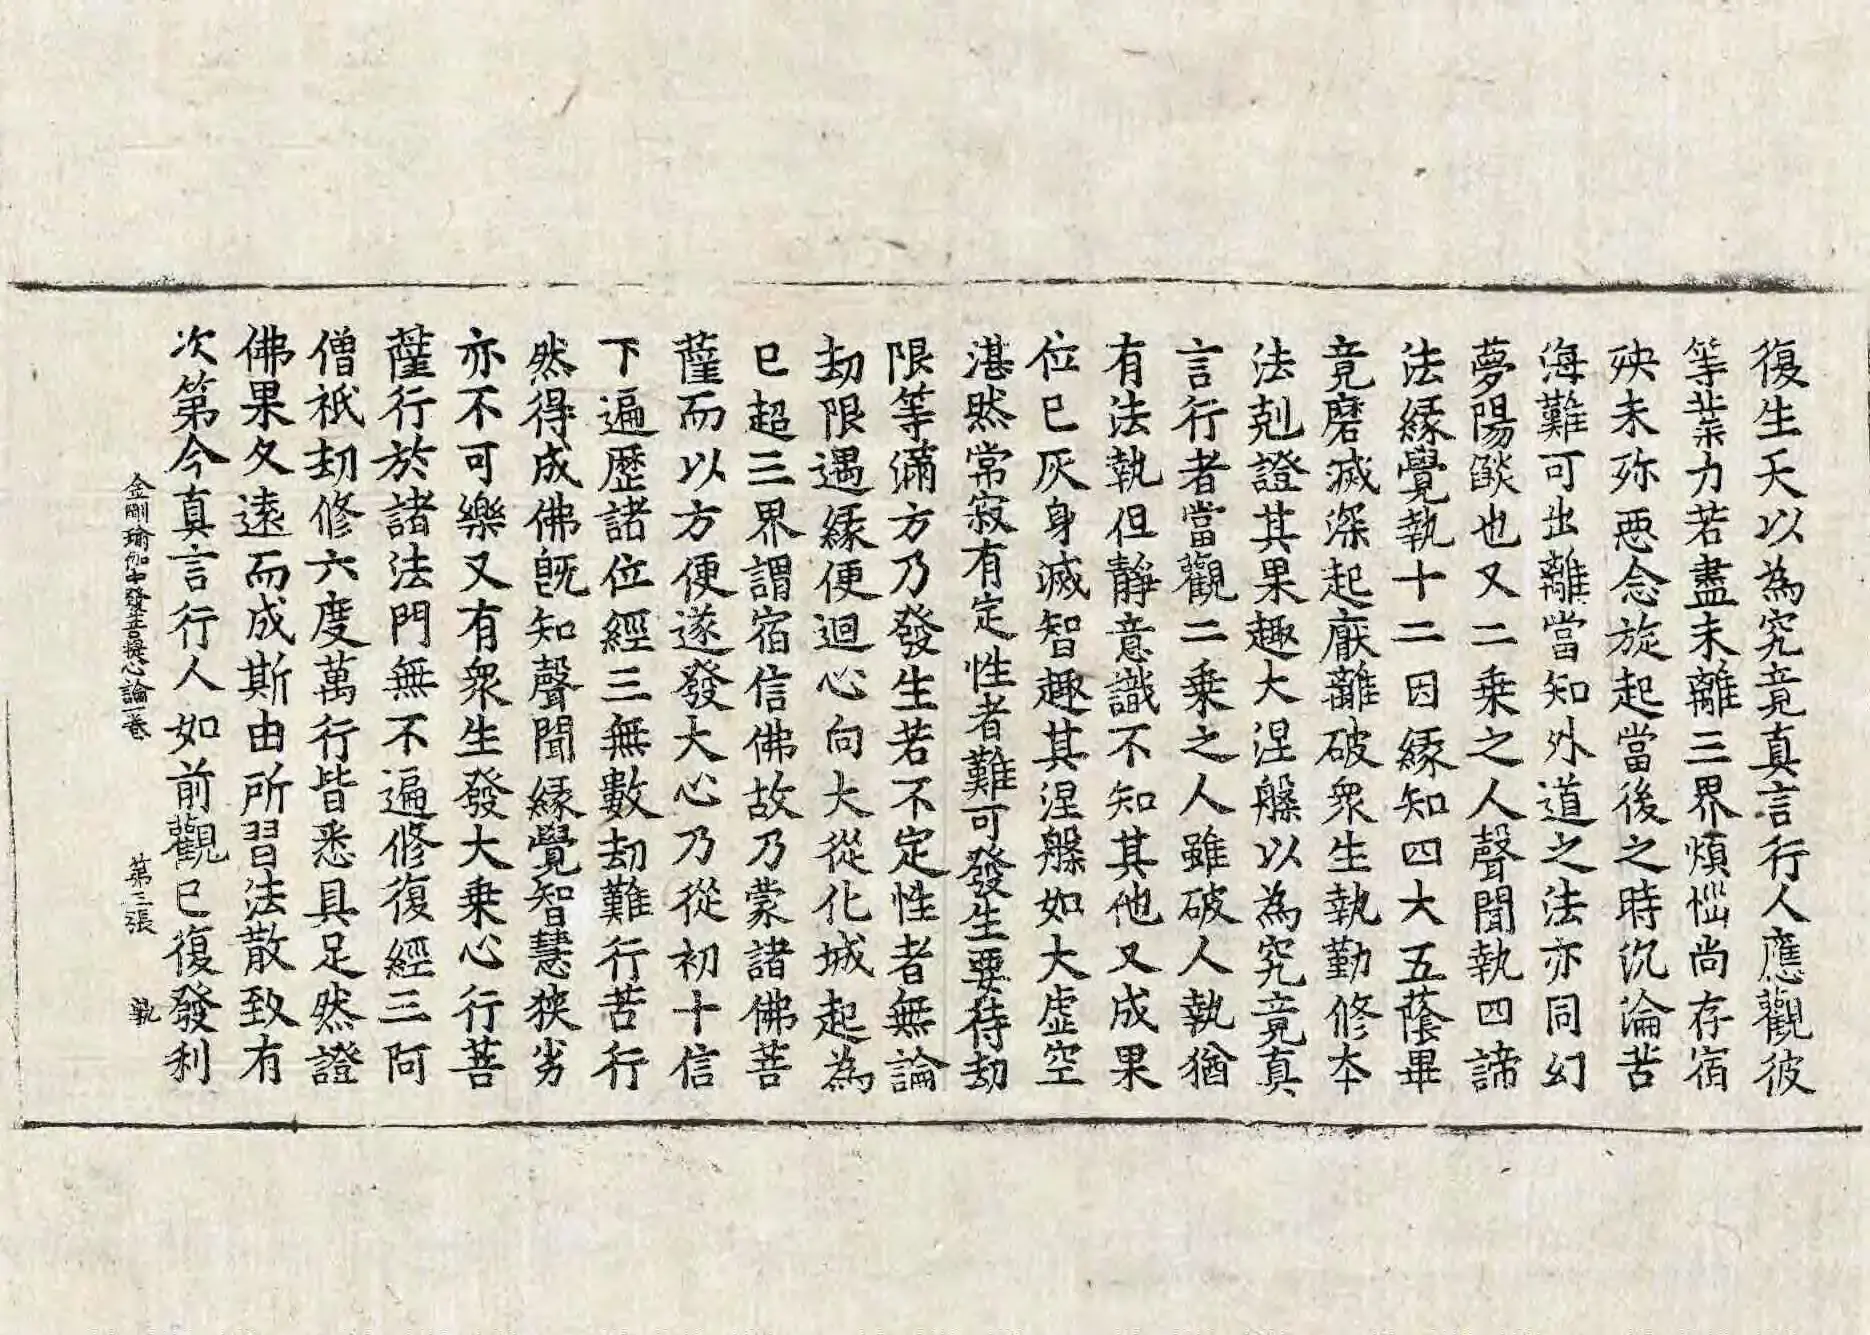 復生天以為究竟真言行人應觀彼
等業力若盡未離三界煩惱尚存宿
殃未殄惡念旋起當後之時沉淪苦
海難可出離當知外道之法亦同幻
夢陽燄也又二乗之人聲聞執四諦
法縁覺執十二因縁知四大五蔭畢
竟磨滅深起厭離破衆生執勤修本
法剋證其果趣大涅槃以為究竟真
言行者當觀二乗之人雖破人執猶
有法執但靜意識不知其他又成果
位已灰身滅智趣其涅槃如大虛空
湛然常寂有定性者難可發生要待劫
限等滿方乃發生若不定性者無論
劫限遇縁便迴心向大從化城起為
已超三界謂宿信佛故乃蒙諸佛菩
薩而以方便遂發大心乃從初十信
下遍歷諸位經三無數劫難行苦行
然得成佛既知聲聞縁覺智慧狹劣
亦不可樂又有衆生發大乗心行菩
薩行於諸法門無不遍修復經三阿
僧祇劫修六度萬行皆悉具足然證
佛果久遠而成斯由所習法散致有
次第今真言行人如前觀已復發利
金剛瑜伽中發菩提心論一卷 第三張 執